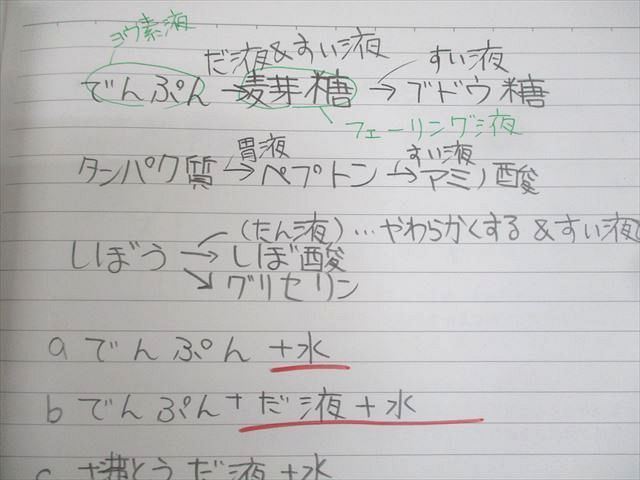 ヨウ素液
だ液&すい液
すい液
でんぷん→麦芽糖→ブドウ糖
フェーリング液
胃液
すい液
タンパク質→ペプトン→アミノ酸
(たん液)…やわらかくする&すい液
しぼう→しぼ酸
グリセリン
a でんぷん+水
b でんぷん+だ液+水
c 沸とうだ液+水